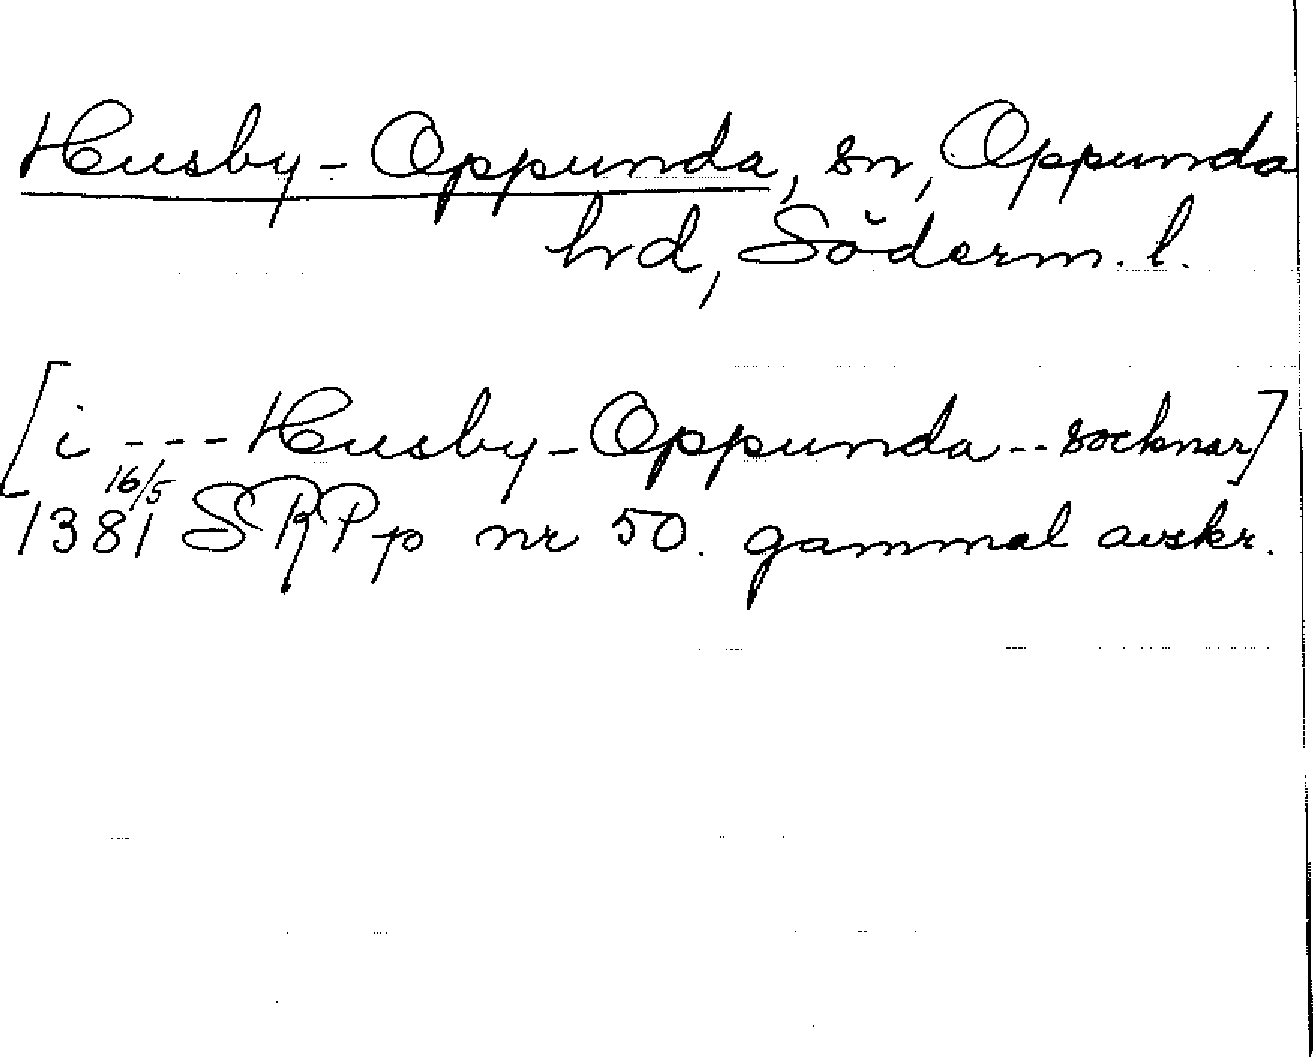 Husby-Oppunda, sn, Oppunda
hd, Söderm. l.
[i --- Husby-Oppunda -- socknar]
16/5
1381 SRPp nr 50. gammal avskr.